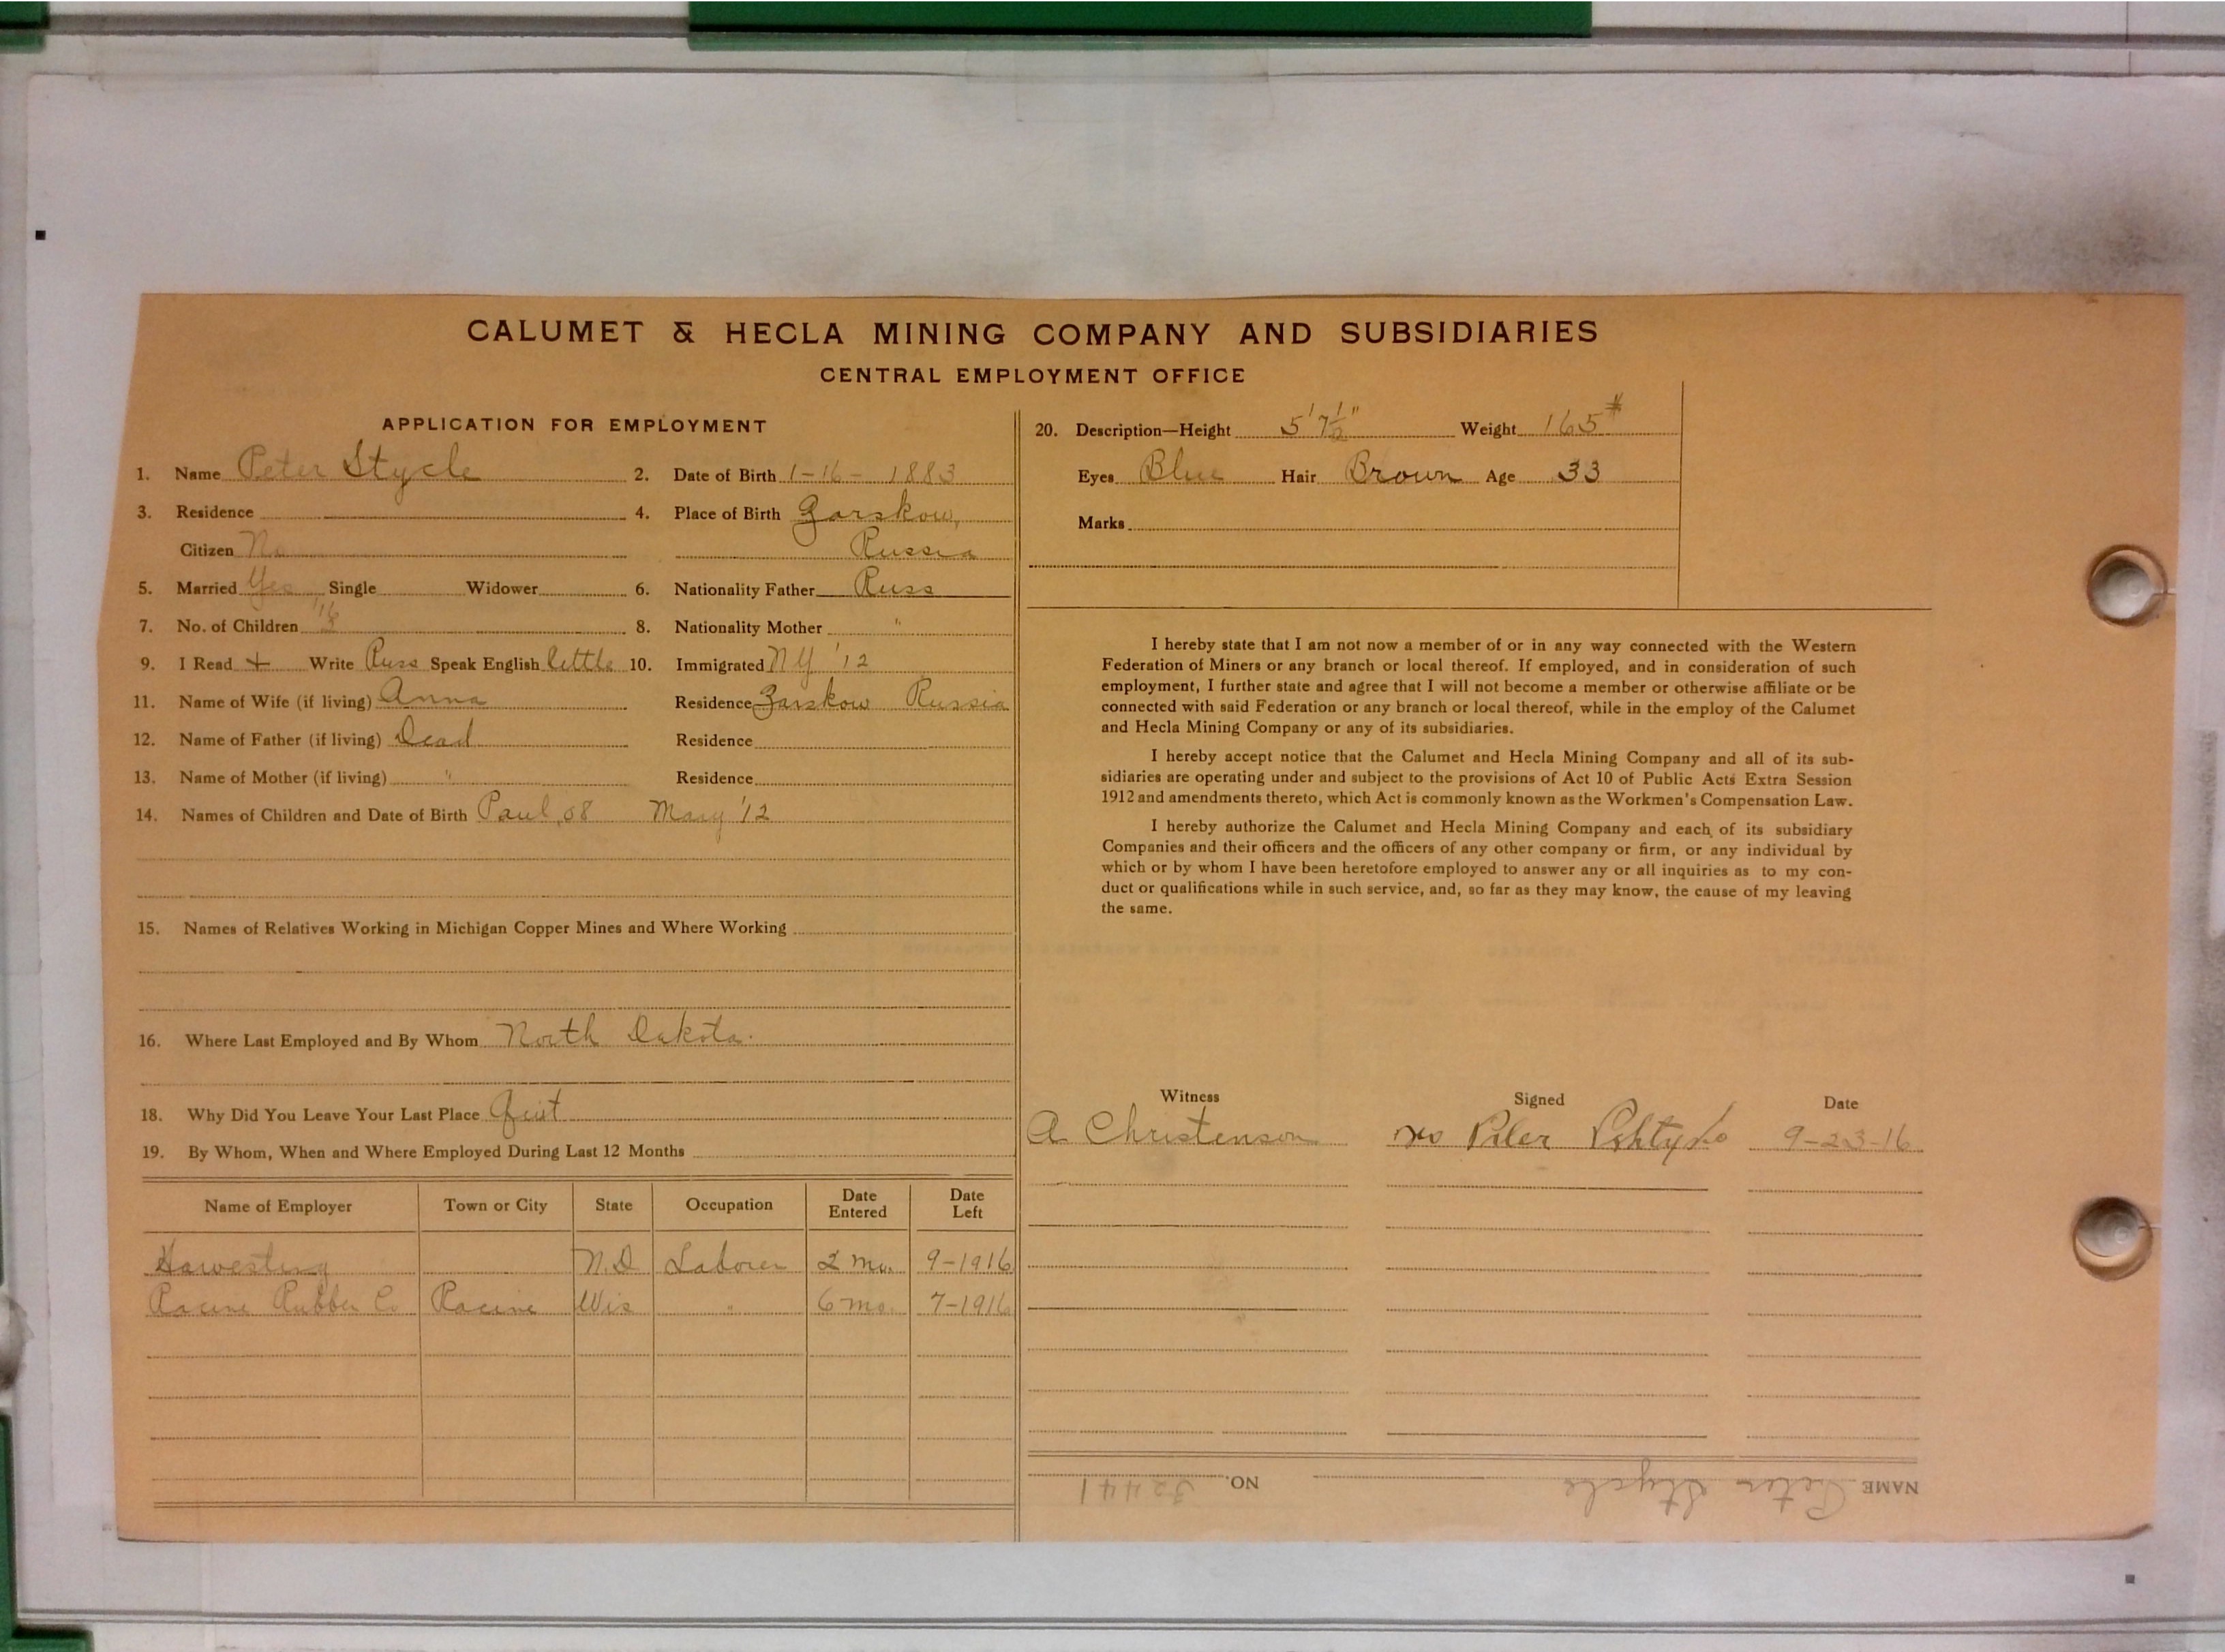 CALUMET & HECLA MINING COMPANY AND SUBSIDIARIES
CENTRAL EMPLOYMENT OFFICE
APPLICATION FOR EMPLOYMENT
1. Name Peter Stycle 2. Date of Birth 1-16-1883
3. Residence 4. Place of Birth Zarskow,
Citizen No Russia
5. Married Yes Single Widower 6. Nationality Father Russ
'16
7. No. of Children 8. Nationality Mother "
9. I Read + Write Russ Speak English little 10. Immigrated NY '12
11. Name of Wife (if living) Anna Residence Zarskow Russia
12. Name of Father (if living) Dead Residence
13. Name of Mother (if living) " Residence
14. Names of Children and Date of Birth Paul, 08 Mary '12
15. Names of Relatives Working in Michigan Copper Mines and Where Working
16. Where Last Employed and By Whom North Dakota.
18. Why Did You Leave Your Last Place Quit
19. By Whom, When and Where Employed During Last 12 Months
Name of Employer Town or City State Occupation Date Entered Date Left
Harvesting N.D Laborer 2 mo. 9-1916
Racine Rubber Co Racine Wis " 6 mo. 7-1916
20. Description—Height 5' 7½" Weight 165#
Eyes Blue Hair Brown Age 33
Marks
I hereby state that I am not now a member of or in any way connected with the Western
Federation of Miners or any branch or local thereof. If employed, and in consideration of such
employment, I further state and agree that I will not become a member or otherwise affiliate or be
connected with said Federation or any branch or local thereof, while in the employ of the Calumet
and Hecla Mining Company or any of its subsidiaries.
I hereby accept notice that the Calumet and Hecla Mining Company and all of its sub-
sidiaries are operating under and subject to the provisions of Act 10 of Public Acts Extra Session
1912 and amendments thereto, which Act is commonly known as the Workmen's Compensation Law.
I hereby authorize the Calumet and Hecla Mining Company and each of its subsidiary
Companies and their officers and the officers of any other company or firm, or any individual by
which or by whom I have been heretofore employed to answer any or all inquiries as to my con-
duct or qualifications while in such service, and, so far as they may know, the cause of my leaving
the same.
Witness Signed Date
A Christenson 9-23-16
NAME Peter Stycle NO. 32441